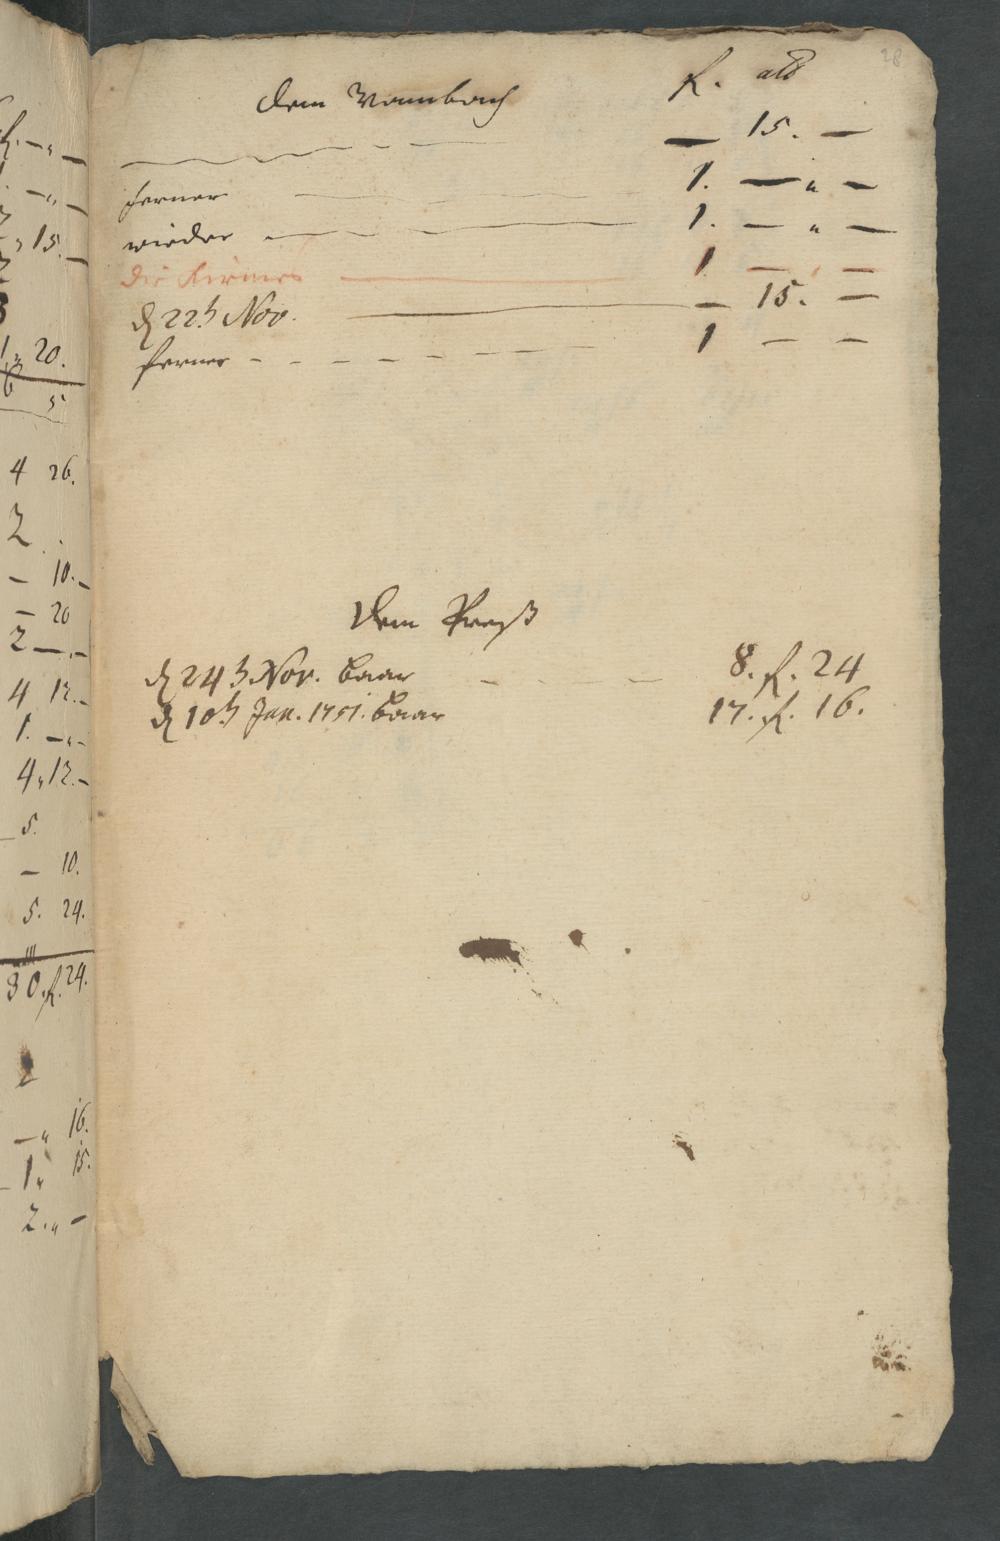 28
Dem Wambach R. alb
— 15. —
ferner 1. — " —
wieder 1. — " —
die Kirmes 1 — , —
d 22t Nov. — 15. —
ferner 1 — —
Dem
d 24t Nov. baar 8. R. 24
d 10t Jan. 1751. baar 17. R. 16.
R. — " —
— " —
" 15.
1 " 20.
6 5
4 26.
2
— 10. —
— 20
2 — . —
4 12. —
1. — " —
4 " 12. —
5.
— 10.
5. 24.
30. R. 24.
2
— " 16.
1 " 15.
2. " —